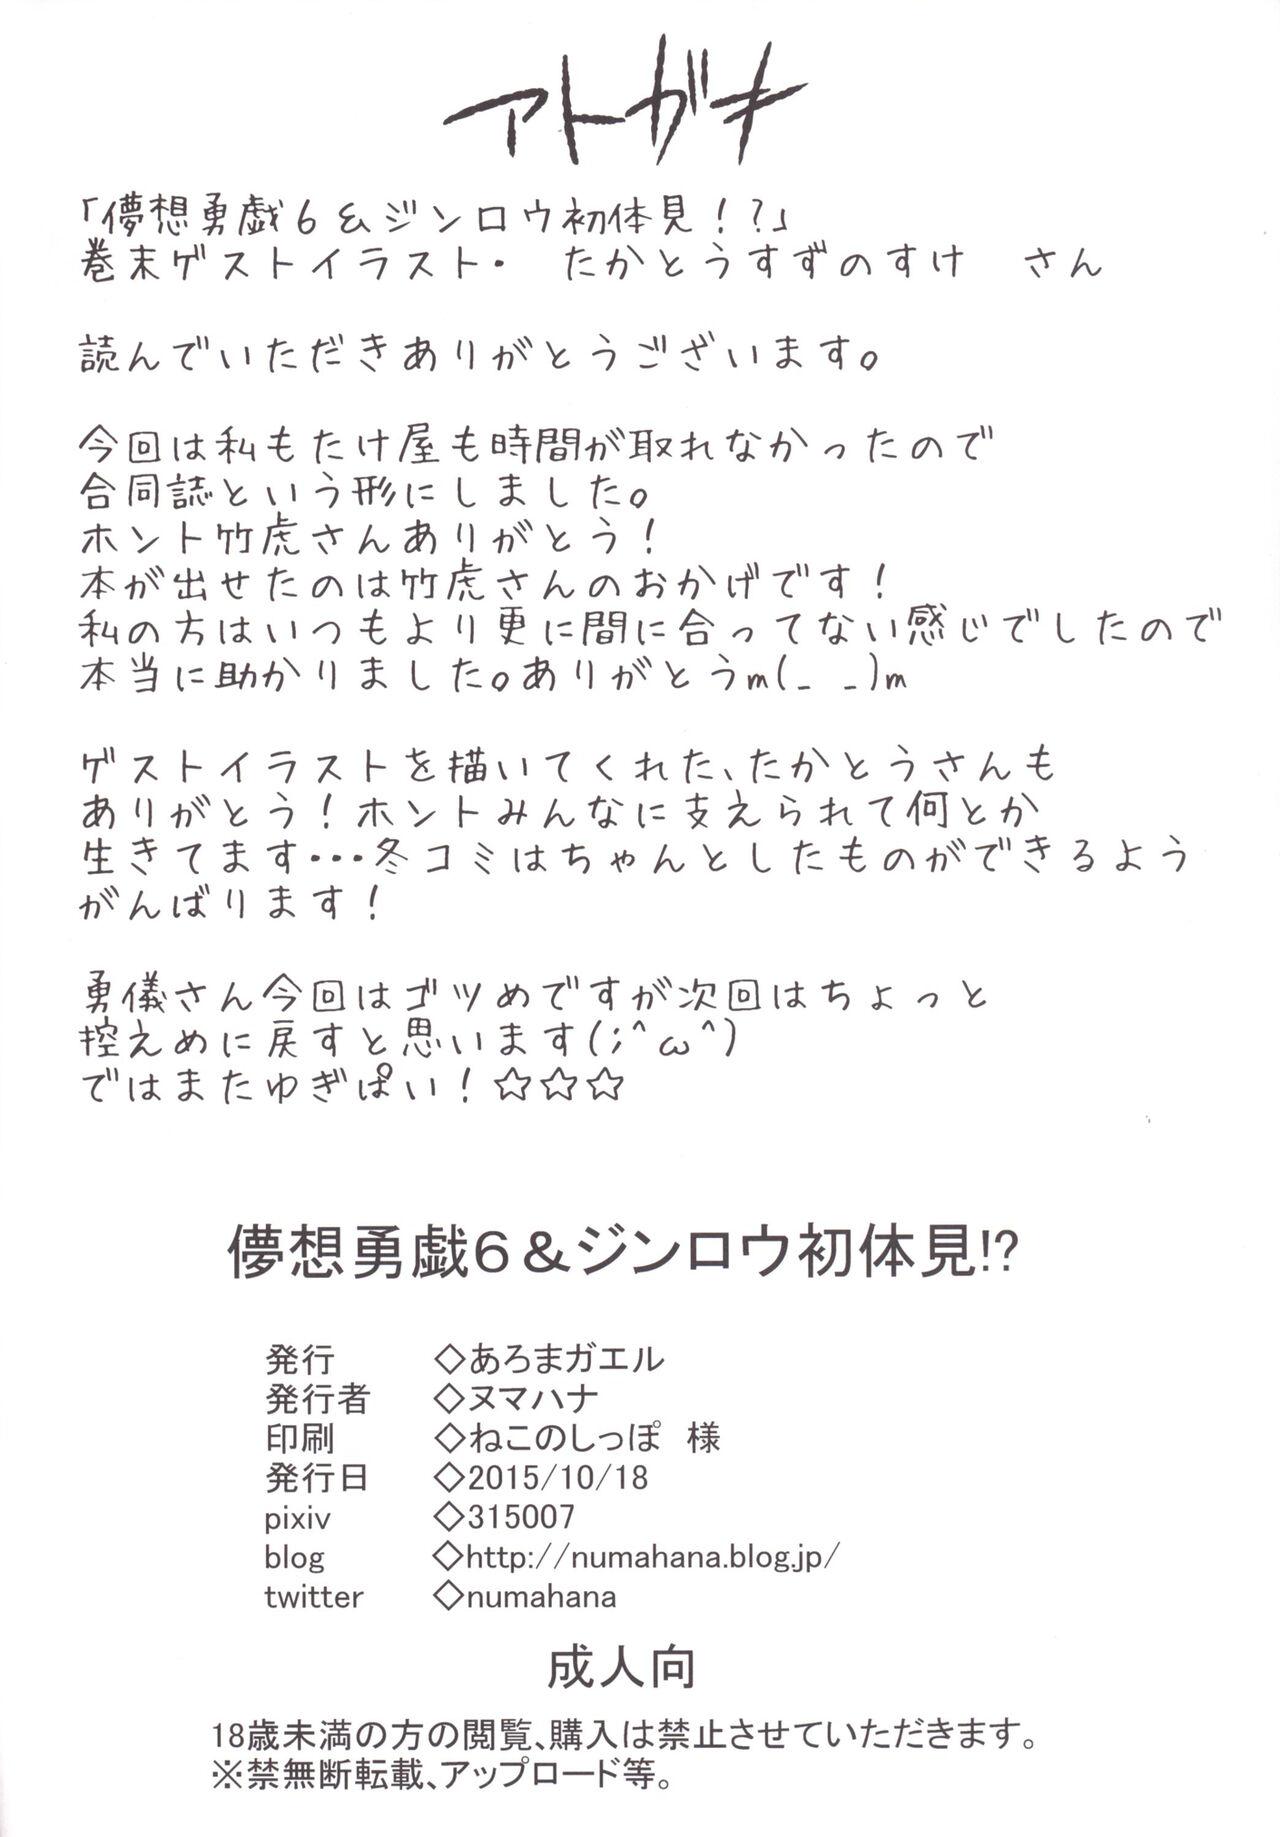 アトガキ
「儚想勇戯6&ジンロウ初体見!?」
巻末ゲストイラスト・　たかとうすずのすけ　さん
読んでいただきありがとうございます。
今回は私もたけ屋も時間が取れなかったので
合同誌という形にしました。
ホント竹虎さんありがとう!
本が出せたのは竹虎さんのおかげです!
私の方はいつもより更に間に合ってない感じでしたので
本当に助かりました。ありがとうm(_ _)m
ゲストイラストを描いてくれた、たかとうさんも
ありがとう!ホントみんなに支えられて何とか
生きてます・・・冬コミはちゃんとしたものができるよう
がんばります!
勇儀さん今回はゴツめですが次回はちょっと
控えめに戻すと思います(;^ω^)
ではまたゆぎぱい!☆☆☆
儚想勇戯6&ジンロウ初体見!?
発行　◇あろまガエル
発行者　◇ヌマハナ
印刷　◇ねこのしっぽ　様
発行日　◇2015/10/18
pixiv　◇315007
blog　◇http://numahana.blog.jp/
twitter　◇numahana
成人向
18歳未満の方の閲覧、購入は禁止させていただきます。
※禁無断転載、アップロード等。